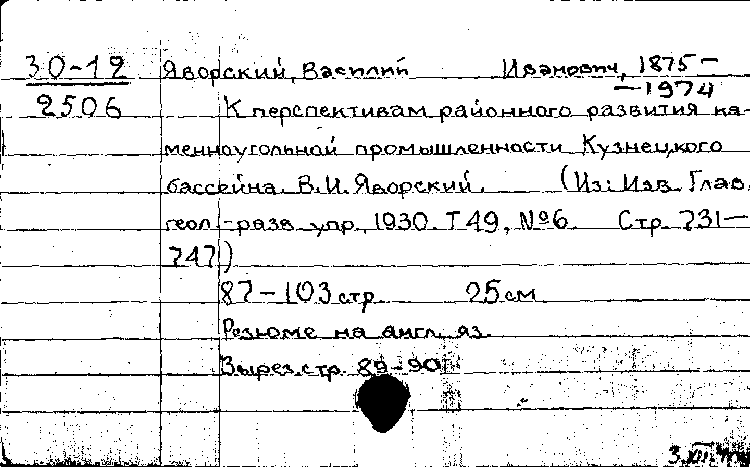 30-12 Яворский, Василий Иванович, 1875-
-1974
2506 К перспективам районного развития ка-
менноугольной промышленности Кузнецкого
бассейна. В.И. Яворский. (Из: Изв. Глав.
геол-разв. упр., 1930. Т 49, №6. Стр. 731-
747)
87-103 стр. 25 см
Резюме на англ. яз.
Вырез. стр. 89-90